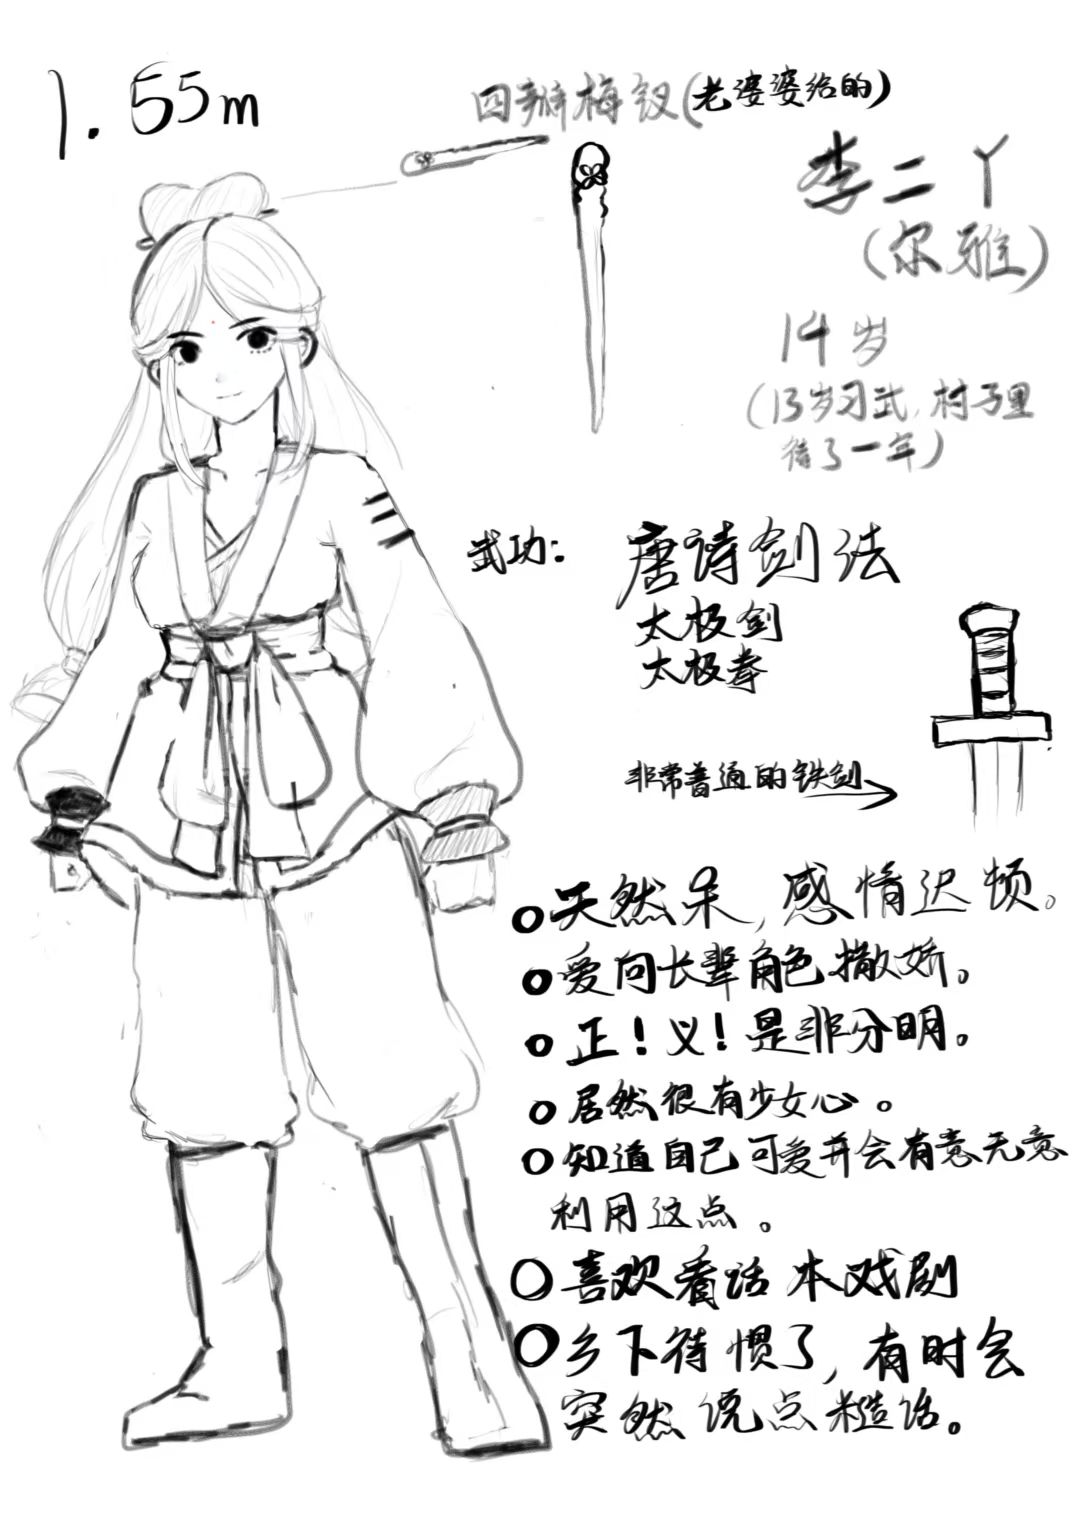 1.55m
四瓣梅钗(老婆婆给的)
李二丫
(尔雅)
14岁
(13岁习武,村子里
待了一年)
武功:
唐诗剑法
太极剑
太极拳
非常普通的铁剑
天然呆,感情迟顿。
爱向长辈角色撒娇。
正!义!是非分明。
居然很有少女心。
知道自己可爱并会有意无意
利用这点。
喜欢看话本戏剧
乡下待惯了,有时会
突然说点糙话。